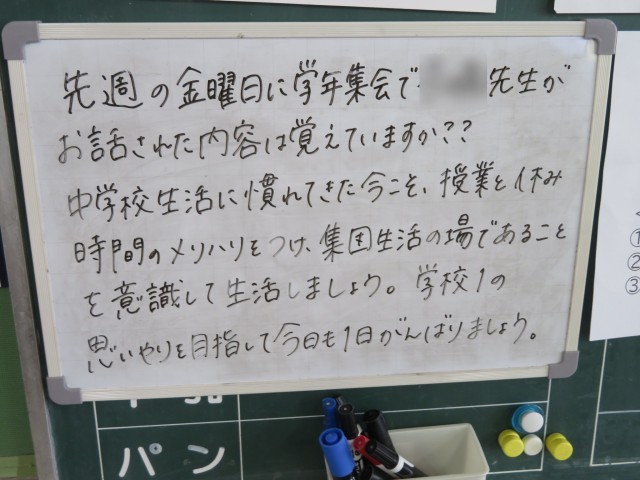 先週の金曜日に学年集会で 先生が
お話された内容は覚えていますか??
中学校生活に慣れてきた今こそ、授業と休み
時間のメリハリをつけ、集団生活の場であること
を意識して生活しましょう。学校1の
思いやりを目指して今日も1日がんばりましょう。
パン
①
②
③